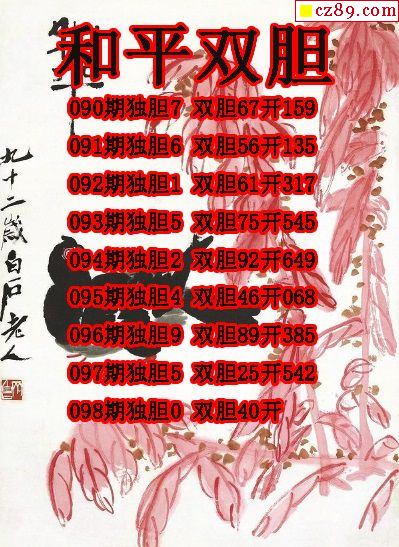 cz89.com
和平双胆
090期独胆7 双胆67开159
091期独胆6 双胆56开135
092期独胆1 双胆61开317
093期独胆5 双胆75开545
094期独胆2 双胆92开649
095期独胆4 双胆46开068
096期独胆9 双胆89开385
097期独胆5 双胆25开542
098期独胆0 双胆40开
九十二岁白石老人